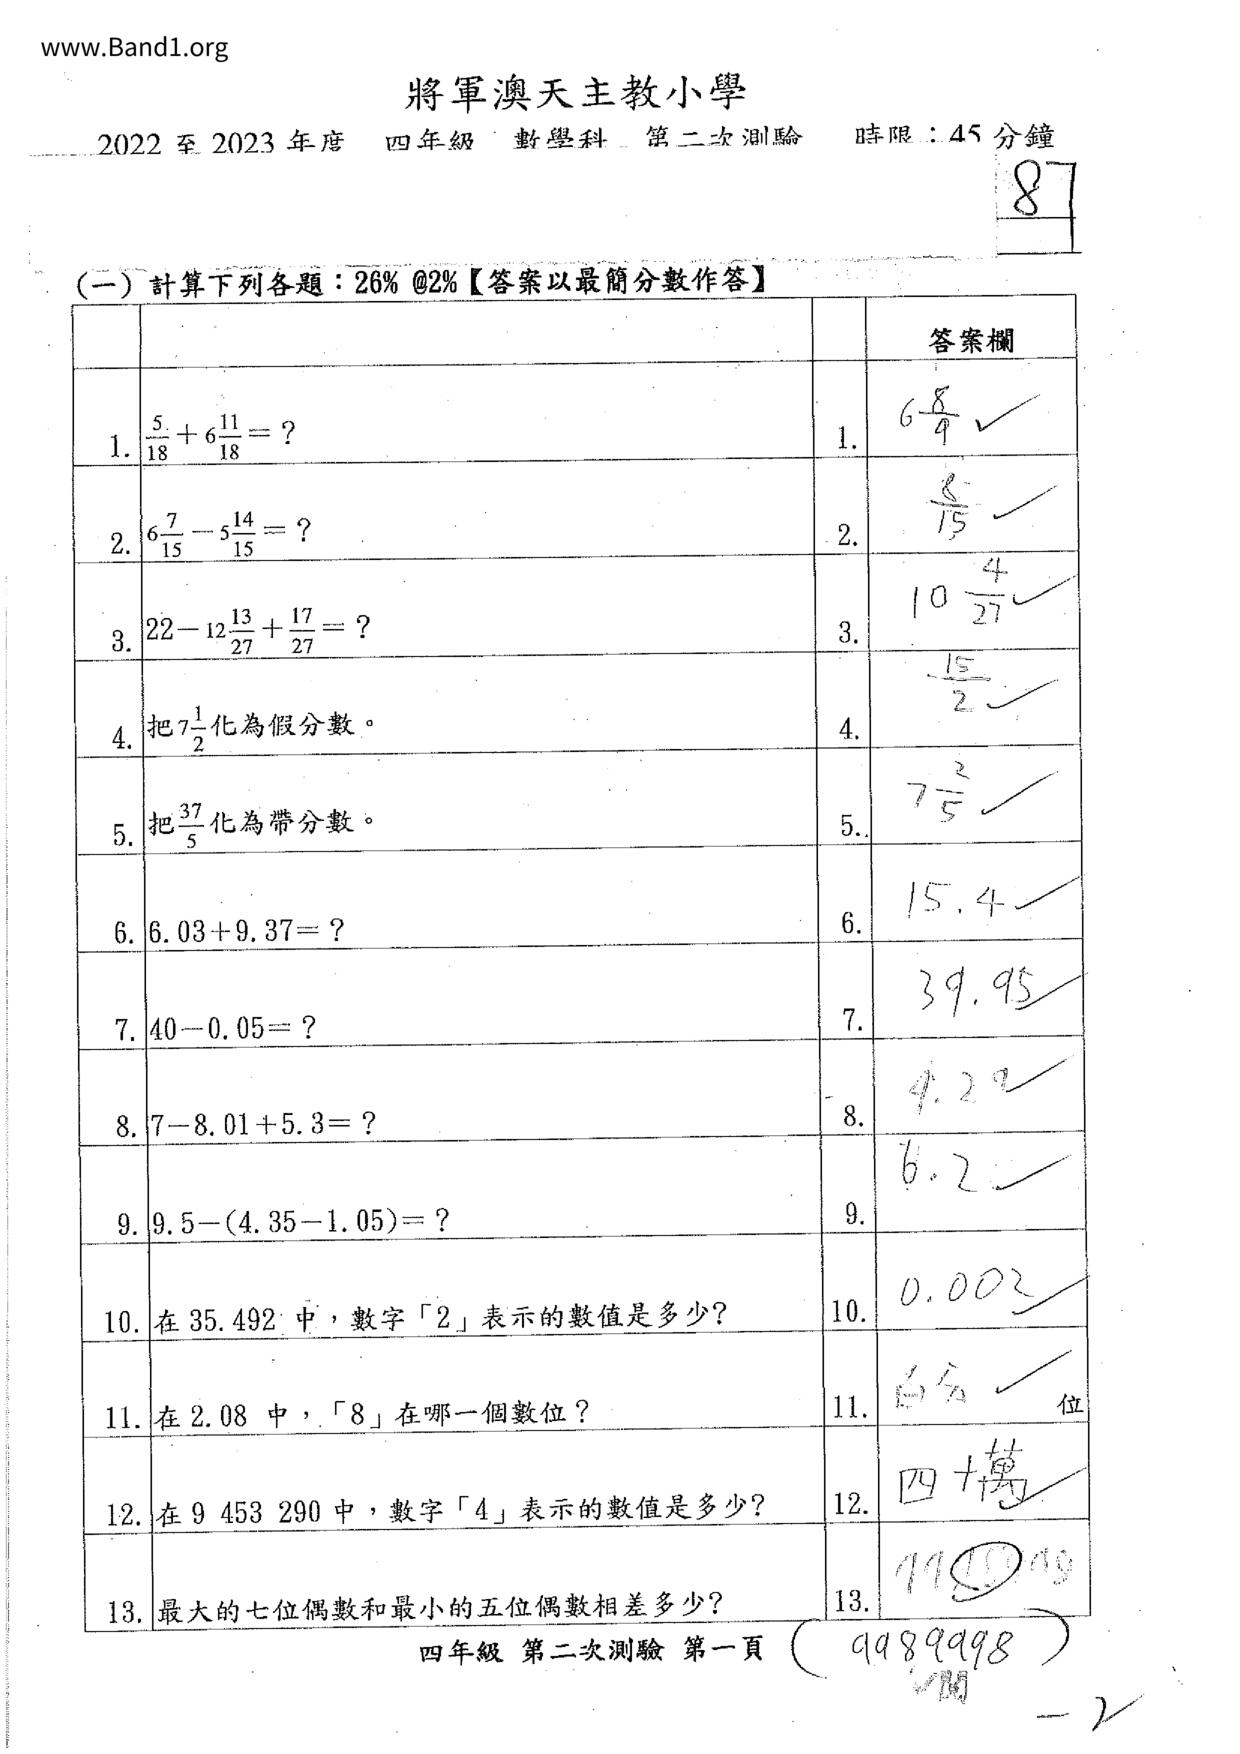 www.Band1.org
將軍澳天主教小學
2022 至 2023 年度 四年級 數學科 第二次測驗 時限：45 分鐘
87
(一) 計算下列各題：26% @2%【答案以最簡分數作答】
答案欄
1. 5/18 + 6 11/18 = ? 1. 6 8/9
2. 6 7/15 － 5 14/15 = ? 2. 8/15
3. 22－12 13/27 + 17/27 = ? 3. 10 4/27
4. 把 7 1/2 化為假分數。 4. 15/2
5. 把 37/5 化為帶分數。 5. 7 2/5
6. 6.03＋9.37＝? 6. 15.4
7. 40－0.05＝? 7. 39.95
8. 7－8.01＋5.3＝? 8. 4.29
9. 9.5－(4.35－1.05)＝? 9. 6.2
10. 在 35.492 中，數字「2」表示的數值是多少? 10. 0.002
11. 在 2.08 中，「8」在哪一個數位? 11. 百分 位
12. 在 9 453 290 中，數字「4」表示的數值是多少? 12. 四十萬
13. 最大的七位偶數和最小的五位偶數相差多少? 13.
四年級 第二次測驗 第一頁 (9989998)
閱
－2